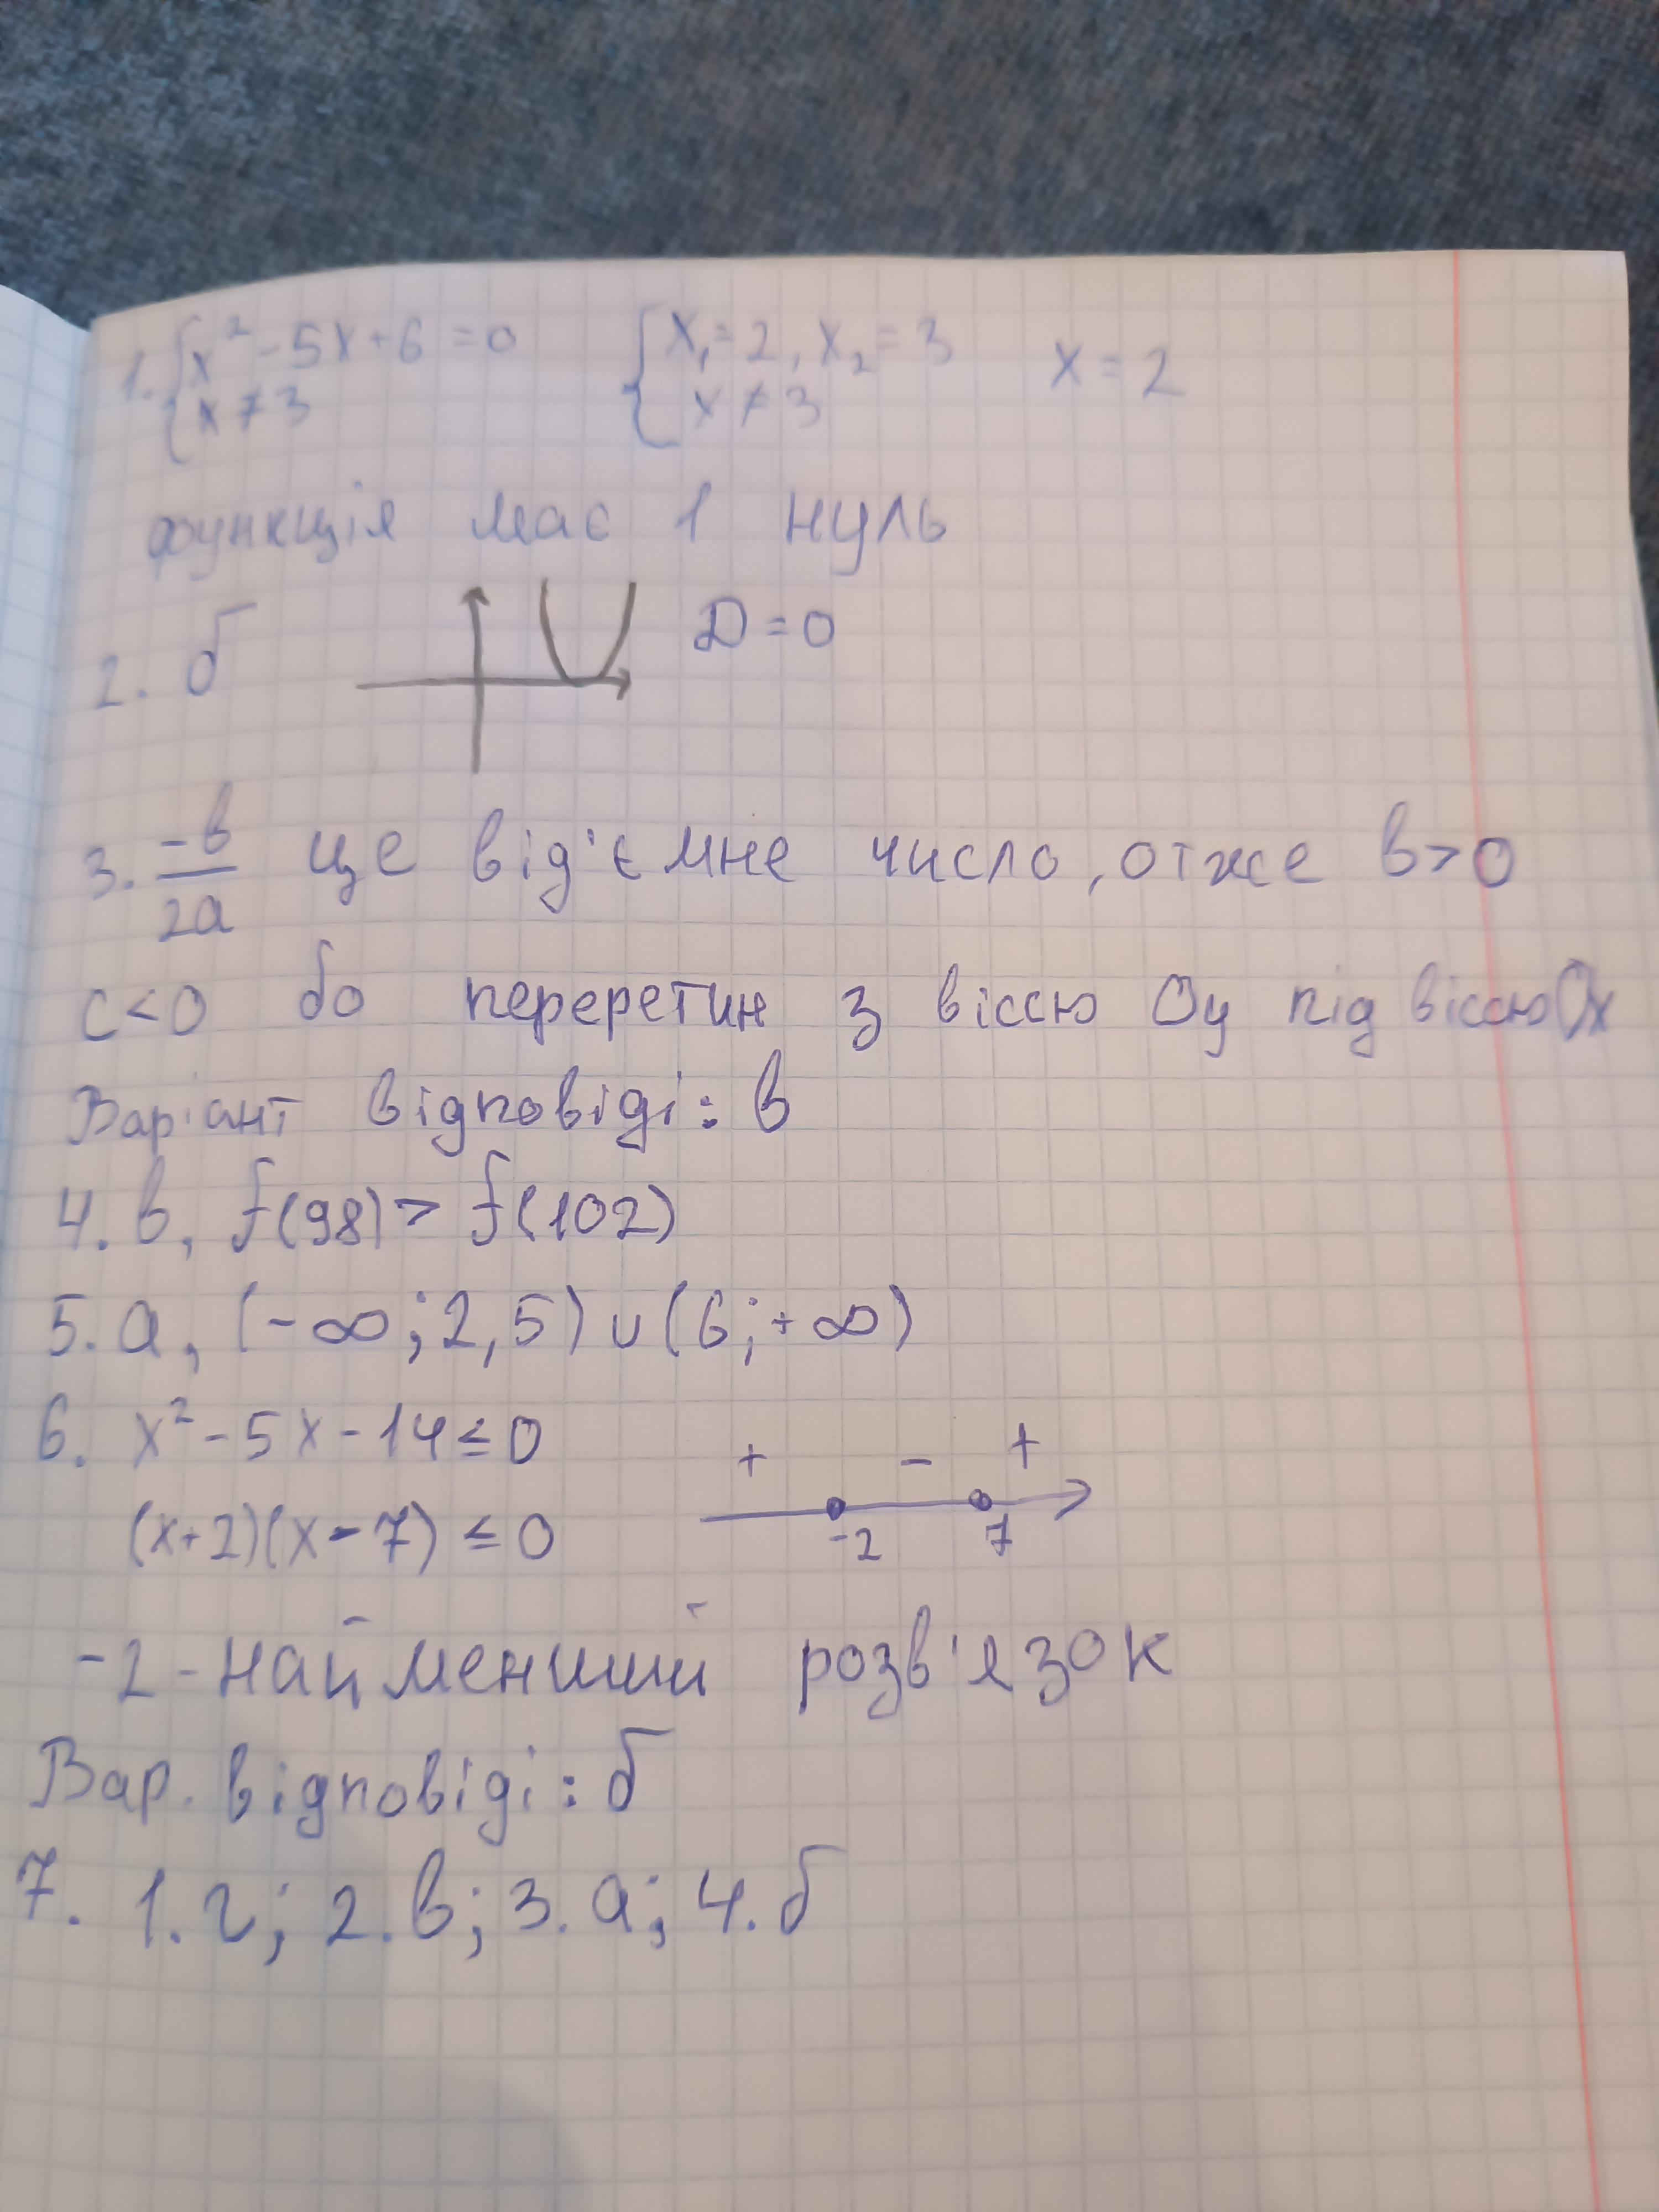 1. { x² - 5x + 6 = 0   { x₁ = 2, x₂ = 3   x = 2
x ≠ 3   x ≠ 3
функція має 1 нуль
2. б   D = 0
3. -b/2a це від'ємне число, отже b > 0
c < 0 бо переретин з віссю Oy під віссю Ox
Варіант відповіді: в
4. в, f(98) > f(102)
5. а, (-∞; 2,5) ∪ (6; +∞)
6. x² - 5x - 14 ≤ 0   + - +
(x + 2)(x - 7) ≤ 0   -2 7
-2 - найменший розв'язок
Вар. відповіді: б
7. 1. г; 2. в; 3. а; 4. б